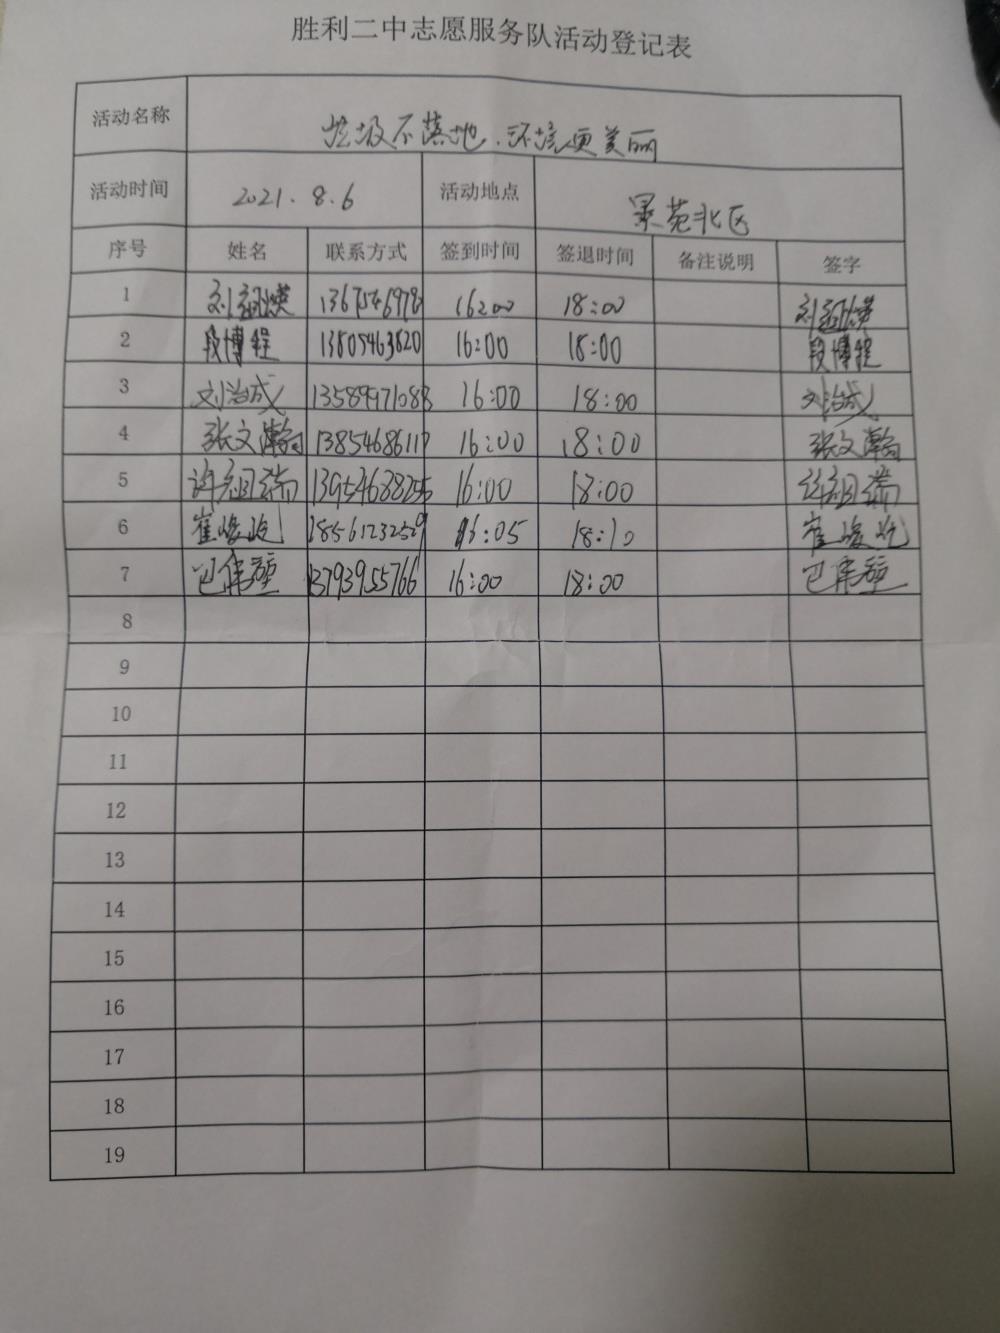 胜利二中志愿服务队活动登记表
活动名称 垃圾不落地、环境更美丽
活动时间 2021.8.6 活动地点 景苑北区
序号 姓名 联系方式 签到时间 签退时间 备注说明 签字
1 刘 16:00 18:00 刘
2 段博程 13805463820 16:00 18:00 段博程
3 刘治成 16:00 18:00 刘治成
4 张文瀚 13854686117 16:00 18:00 张文瀚
5 许祖瑞 16:00 18:00 许祖瑞
6 崔峻屹 16:05 18:10 崔峻屹
7 13793955766 16:00 18:00
8
9
10
11
12
13
14
15
16
17
18
19